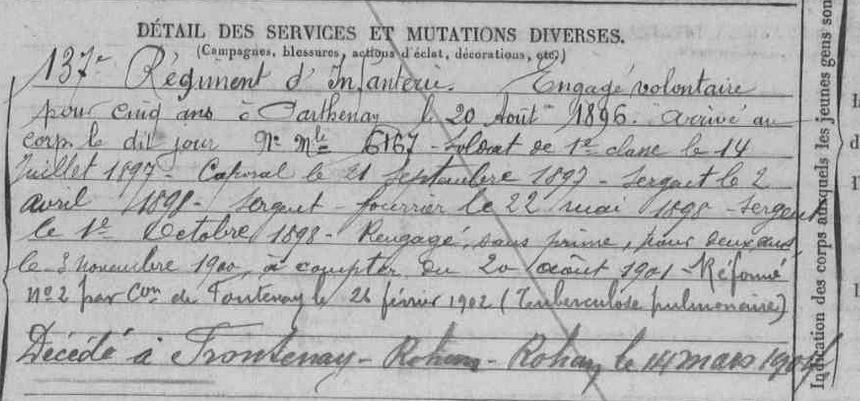 DÉTAIL DES SERVICES ET MUTATIONS DIVERSES.
(Campagnes, blessures, actions d'éclat, décorations, etc.)
137e Régiment d'Infanterie. Engagé volontaire
pour cinq ans à Parthenay le 20 Août 1896. Arrivé au
corps le dit jour No Mle 6167 - Soldat de 1e classe le 14
Juillet 1897 - Caporal le 21 Septembre 1897 - Sergent le 2
avril 1898 - Sergent - fourrier le 22 mai 1898 - Sergent
le 1e Octobre 1898 - Rengagé, sans prime, pour deux ans
le 3 novembre 1900, à compter du 20 août 1901 - Réformé
No 2 par Con de Fontenay le 26 février 1902 (Tuberculose pulmonaire)
Décédé à Frontenay - Rohan - Rohan le 14 mars 1904
Indication des corps auxquels les jeunes gens son